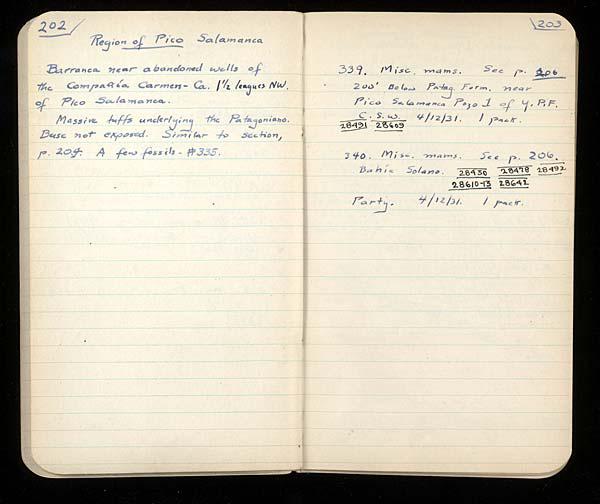 202
Region of Pico Salamanca
Barranca near abandoned wells of
the Compañía Carmen - Ca. 1½ leagues NW.
of Pico Salamanca.
Massive tuffs underlying the Patagoniano.
Base not exposed. Similar to section,
p. 204. A few fossils - #335.
203
339. Misc. mams. See p. 206
200' Below Patag. Form. near
Pico Salamanca Pozo 1 of Y.P.F.
C.S.W. 4/12/31. 1 pack.
28491 28609
340. Misc. mams. See p. 206.
Bahía Solano. 28436 28478 28492
28610-13 28642
Party. 4/12/31. 1 pack.